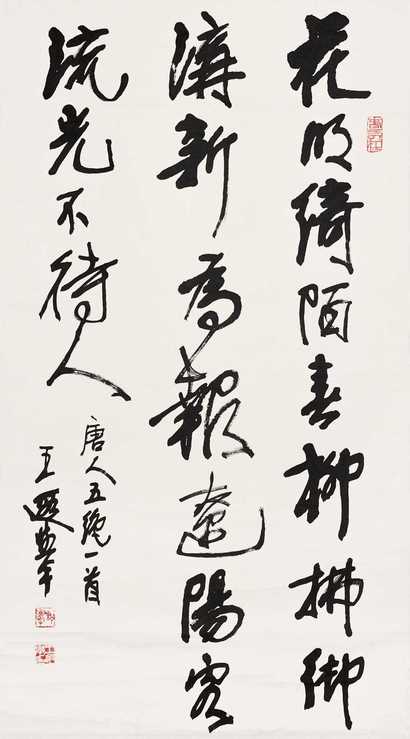 花明綺陌春柳拂御
溝新為報遼陽客
流光不待人
唐人五絕一首
王遐舉